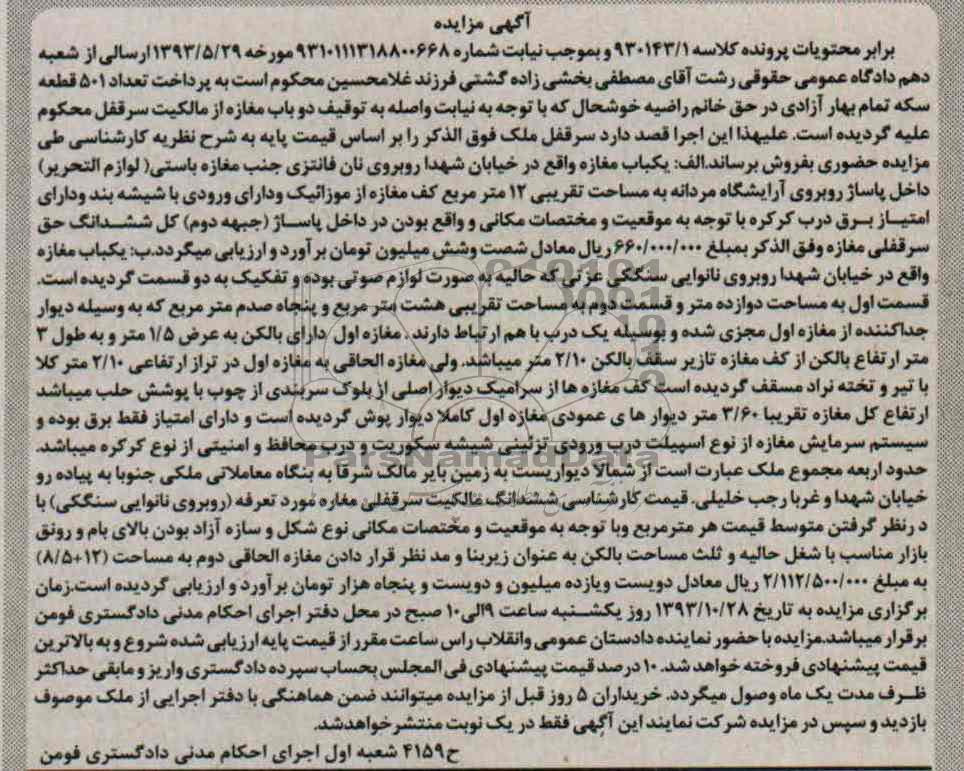 آگهی مزایده
برابر محتویات پرونده کلاسه ۹۳۰۱۴۳/۱ و بموجب نیابت شماره ۹۳۱۰۱۱۱۳۱۸۸۰۰۶۶۸ مورخه ۱۳۹۳/۵/۲۹ ارسالی از شعبه
دهم دادگاه عمومی حقوقی رشت آقای مصطفی بخشی زاده گشتی فرزند غلامحسین محکوم است به پرداخت تعداد ۵۰۱ قطعه
سکه تمام بهار آزادی در حق خانم راضیه خوشحال که با توجه به نیابت واصله به توقیف دو باب مغازه از مالکیت سرقفل محکوم
علیه گردیده است. علیهذا این اجرا قصد دارد سرقفل ملک فوق الذکر را بر اساس قیمت پایه به شرح نظریه کارشناسی طی
مزایده حضوری بفروش برساند.الف: یکباب مغازه واقع در خیابان شهدا روبروی نان فانتزی جنب مغازه باستی( لوازم التحریر)
داخل پاساژ روبروی آرایشگاه مردانه به مساحت تقریبی ۱۲ متر مربع کف مغازه از موزائیک ودارای ورودی با شیشه بند ودارای
امتیاز برق درب کرکره با توجه به موقعیت و مختصات مکانی و واقع بودن در داخل پاساژ (جبهه دوم) کل ششدانگ حق
سرقفلی مغازه وفق الذکر بمبلغ ۶۶۰/۰۰۰/۰۰۰ ریال معادل شصت وشش میلیون تومان بر آورد و ارزیابی میگردد.ب: یکباب مغازه
واقع در خیابان شهدا روبروی نانوایی سنگکی عزتی که حالیه به صورت لوازم صوتی بوده و تفکیک به دو قسمت گردیده است.
قسمت اول به مساحت دوازده متر و قسمت دوم به مساحت تقریبی هشت متر مربع و پنجاه صدم متر مربع که به وسیله دیوار
جداکننده از مغازه اول مجزی شده و بوسیله یک درب با هم ارتباط دارند. مغازه اول دارای بالکن به عرض ۱/۵ متر و به طول ۳
متر ارتفاع بالکن از کف مغازه تازیر سقف بالکن ۲/۱۰ متر میباشد. ولی مغازه الحاقی به مغازه اول در تراز ارتفاعی ۲/۱۰ متر کلا
با تیر و تخته نراد مسقف گردیده است کف مغازه ها از سرامیک دیوار اصلی از بلوک سربندی از چوب با پوشش حلب میباشد
ارتفاع کل مغازه تقریبا ۳/۶۰ متر دیوار ها ی عمودی مغازه اول کاملا دیوار پوش گردیده است و دارای امتیاز فقط برق بوده و
سیستم سرمایش مغازه از نوع اسپیلت درب ورودی تزئینی شیشه سکوریت و درب محافظ و امنیتی از نوع کرکره میباشد.
حدود اربعه مجموع ملک عبارت است از شمالا دیواریست به زمین بایر مالک شرقا به بنگاه معاملاتی ملکی جنوبا به پیاده رو
خیابان شهدا و غربا رجب خلیلی. قیمت کارشناسی ششدانگ مالکیت سرقفلی مغازه مورد تعرفه (روبروی نانوایی سنگکی) با
درنظر گرفتن متوسط قیمت هر مترمربع وبا توجه به موقعیت و مختصات مکانی نوع شکل و سازه آزاد بودن بالای بام و رونق
بازار مناسب با شغل حالیه و ثلث مساحت بالکن به عنوان زیربنا و مد نظر قرار دادن مغازه الحاقی دوم به مساحت (۱۲+۸/۵)
به مبلغ ۲/۱۱۲/۵۰۰/۰۰۰ ریال معادل دویست ویازده میلیون و دویست و پنجاه هزار تومان بر آورد و ارزیابی گردیده است.زمان
برگزاری مزایده به تاریخ ۱۳۹۳/۱۰/۲۸ روز یکشنبه ساعت ۹الی۱۰ صبح در محل دفتر اجرای احکام مدنی دادگستری فومن
برقرار میباشد.مزایده با حضور نماینده دادستان عمومی وانقلاب راس ساعت مقرر از قیمت پایه ارزیابی شده شروع و به بالاترین
قیمت پیشنهادی فروخته خواهد شد. ۱۰ درصد قیمت پیشنهادی فی المجلس بحساب سپرده دادگستری واریز و مابقی حداکثر
ظرف مدت یک ماه وصول میگردد. خریداران ۵ روز قبل از مزایده میتوانند ضمن هماهنگی با دفتر اجرایی از ملک موصوف
بازدید و سپس در مزایده شرکت نمایند این آگهی فقط در یک نوبت منتشر خواهدشد.
ح۴۱۵۹ شعبه اول اجرای احکام مدنی دادگستری فومن
ParsNamadData